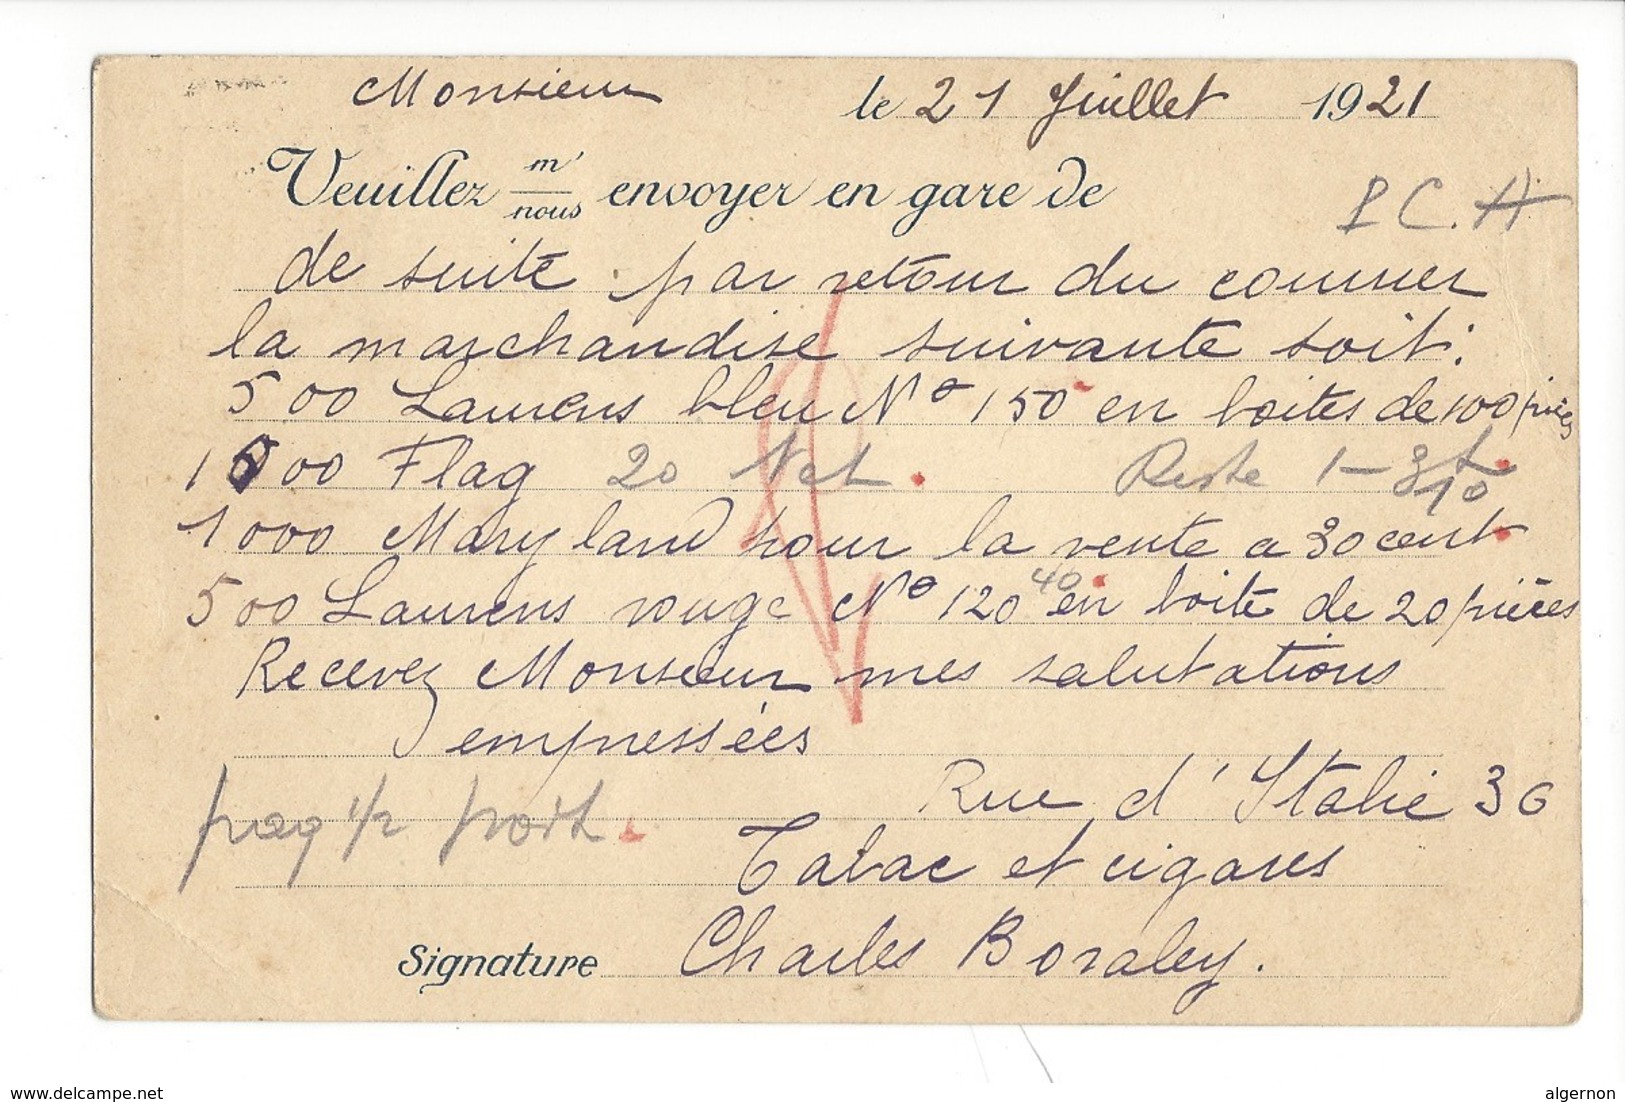 Monsieur
le 21 Juillet 1921
Veuillez m'/nous envoyer en gare de
de suite par retour du courrier
la marchandise suivante soit:
500 Laurens bleu No 150 en boites de 100 pièces
1000 Flag 20 Net. Reste 1-
1000 Maryland pour la vente a 30 cent
500 Laurens rouge No 120 40 en boite de 20 pièces
Recevez Monsieur mes salutations
empressées
Rue d'Italie 36
1/2 port.
Tabac et cigares
Signature Charles Boraley.
www.delcampe.net
algernon